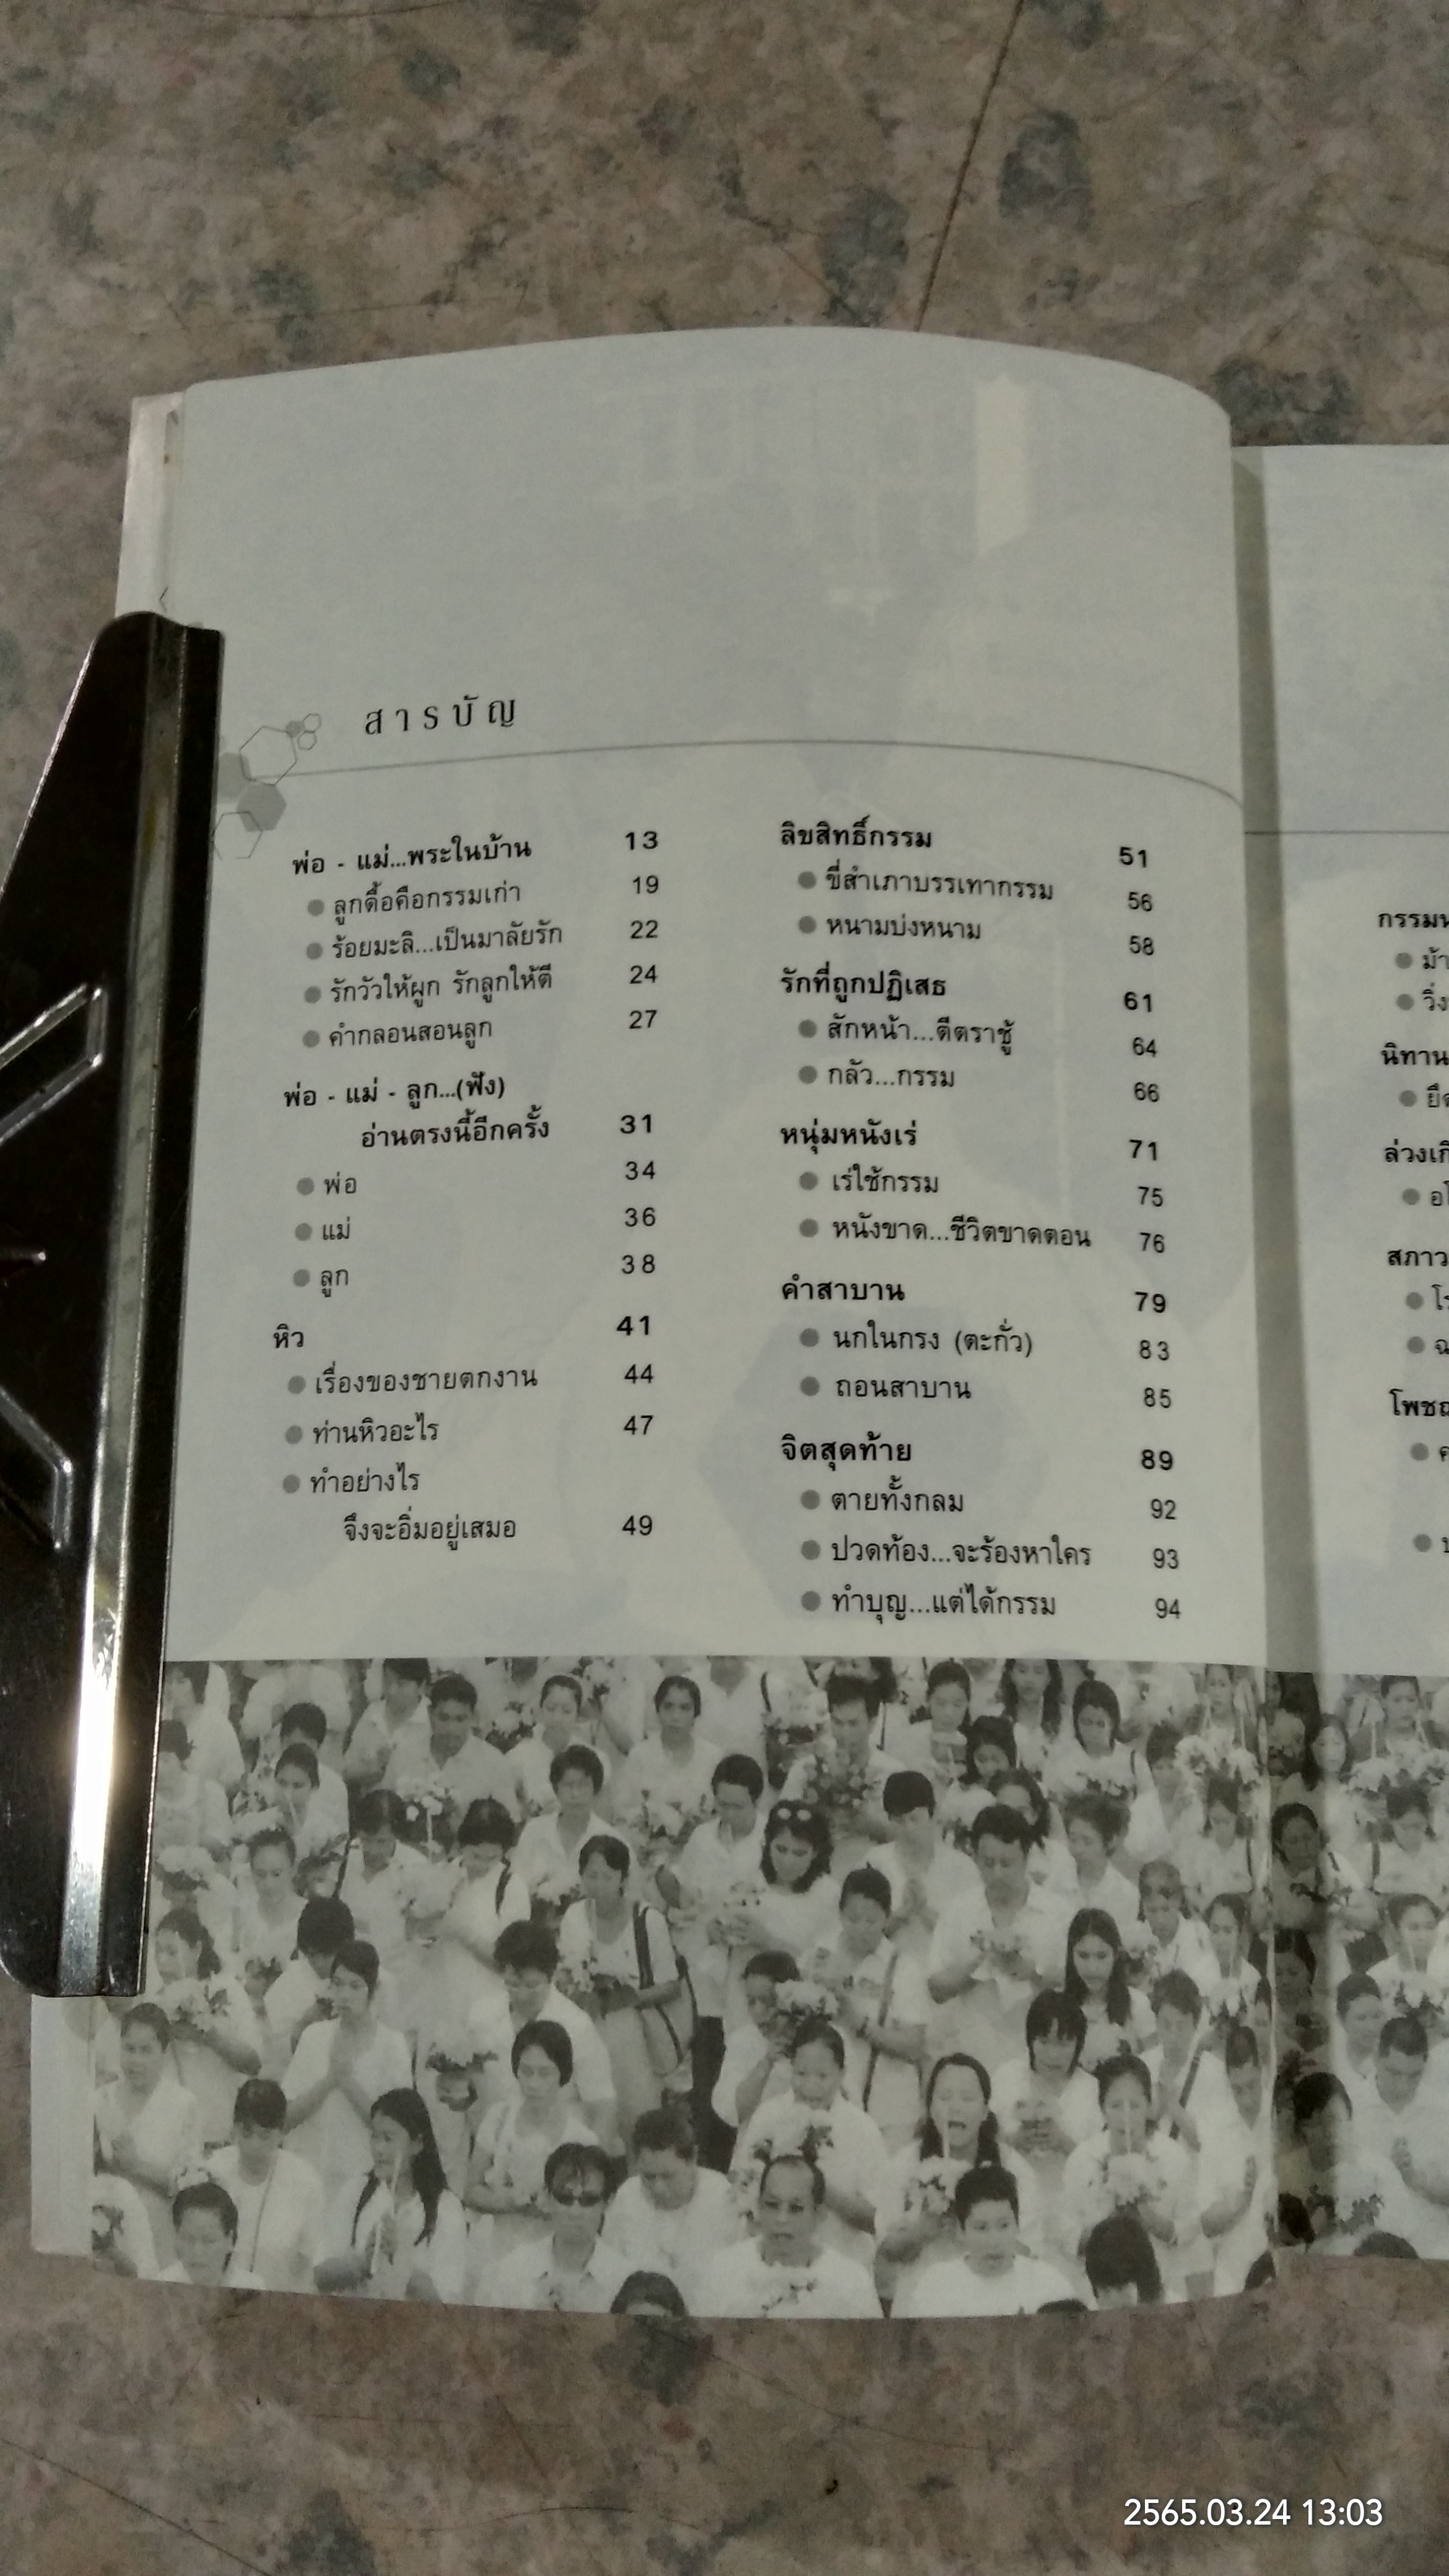 สารบัญ
พ่อ - แม่...พระในบ้าน 13
ลูกดื้อคือกรรมเก่า 19
ร้อยมะลิ...เป็นมาลัยรัก 22
รักวัวให้ผูก รักลูกให้ตี 24
คำกลอนสอนลูก 27
พ่อ - แม่ - ลูก...(ฟัง)
อ่านตรงนี้อีกครั้ง 31
พ่อ 34
แม่ 36
ลูก 38
หิว 41
เรื่องของชายตกงาน 44
ท่านหิวอะไร 47
ทำอย่างไร
จึงจะอิ่มอยู่เสมอ 49
ลิขสิทธิ์กรรม 51
ขี่สำเภาบรรเทากรรม 56
หนามบ่งหนาม 58
รักที่ถูกปฏิเสธ 61
สักหน้า...ตีตราชู้ 64
กลัว...กรรม 66
หนุ่มหนังเร่ 71
เร่ใช้กรรม 75
หนังขาด...ชีวิตขาดตอน 76
คำสาบาน 79
นกในกรง (ตะกั่ว) 83
ถอนสาบาน 85
จิตสุดท้าย 89
ตายทั้งกลม 92
ปวดท้อง...จะร้องหาใคร 93
ทำบุญ...แต่ได้กรรม 94
นิทาน
2565.03.24 13:03